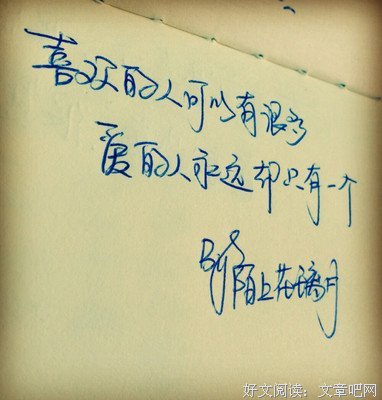 喜欢的人可以有很多
爱的人永远却只有一个
By陌上花璃月
好文阅读：文章吧网